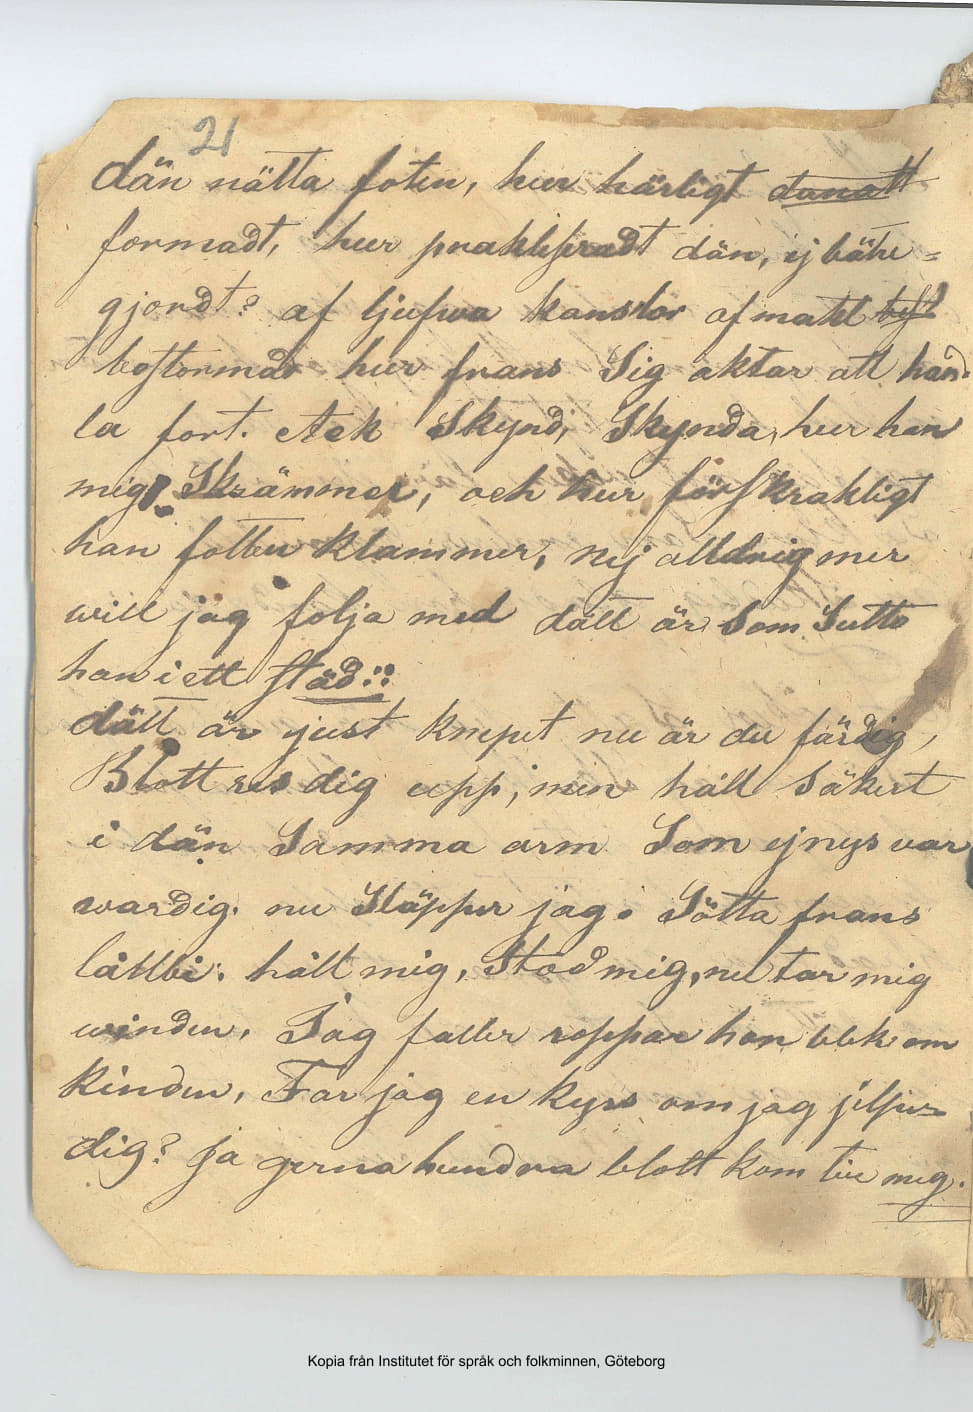 21
dän nätta foten, hur härligt danatt
formadt, hur praktfradt dän, ej bätre=
gjordt? af ljufwa kanslor af makt
bestormad hur frans Sig aktar att han-
la fort. Ack Skynd, Skynda, hur han
mig! Skrämmer, och hur förskrakligt
han fotten klammer, nej alldrig mer
will jag folja med dätt är Som Sutte
han i ett städ.::
dätt är just knepet nu är du färdig,
Blott res dig upp, min hält Säkert
i dän Samma arm Som ejnys var
wardig. nu Släpper jag. Sötta frans
lättbi. hålt mig, Stod mig, nu tar mig
winden. Jag faller roppar hon blek om
kinden, Far jag en kyss om jag jelper
dig? Ja gerna hundra blott kom till meg.
Kopia från Institutet för språk och folkminnen, Göteborg